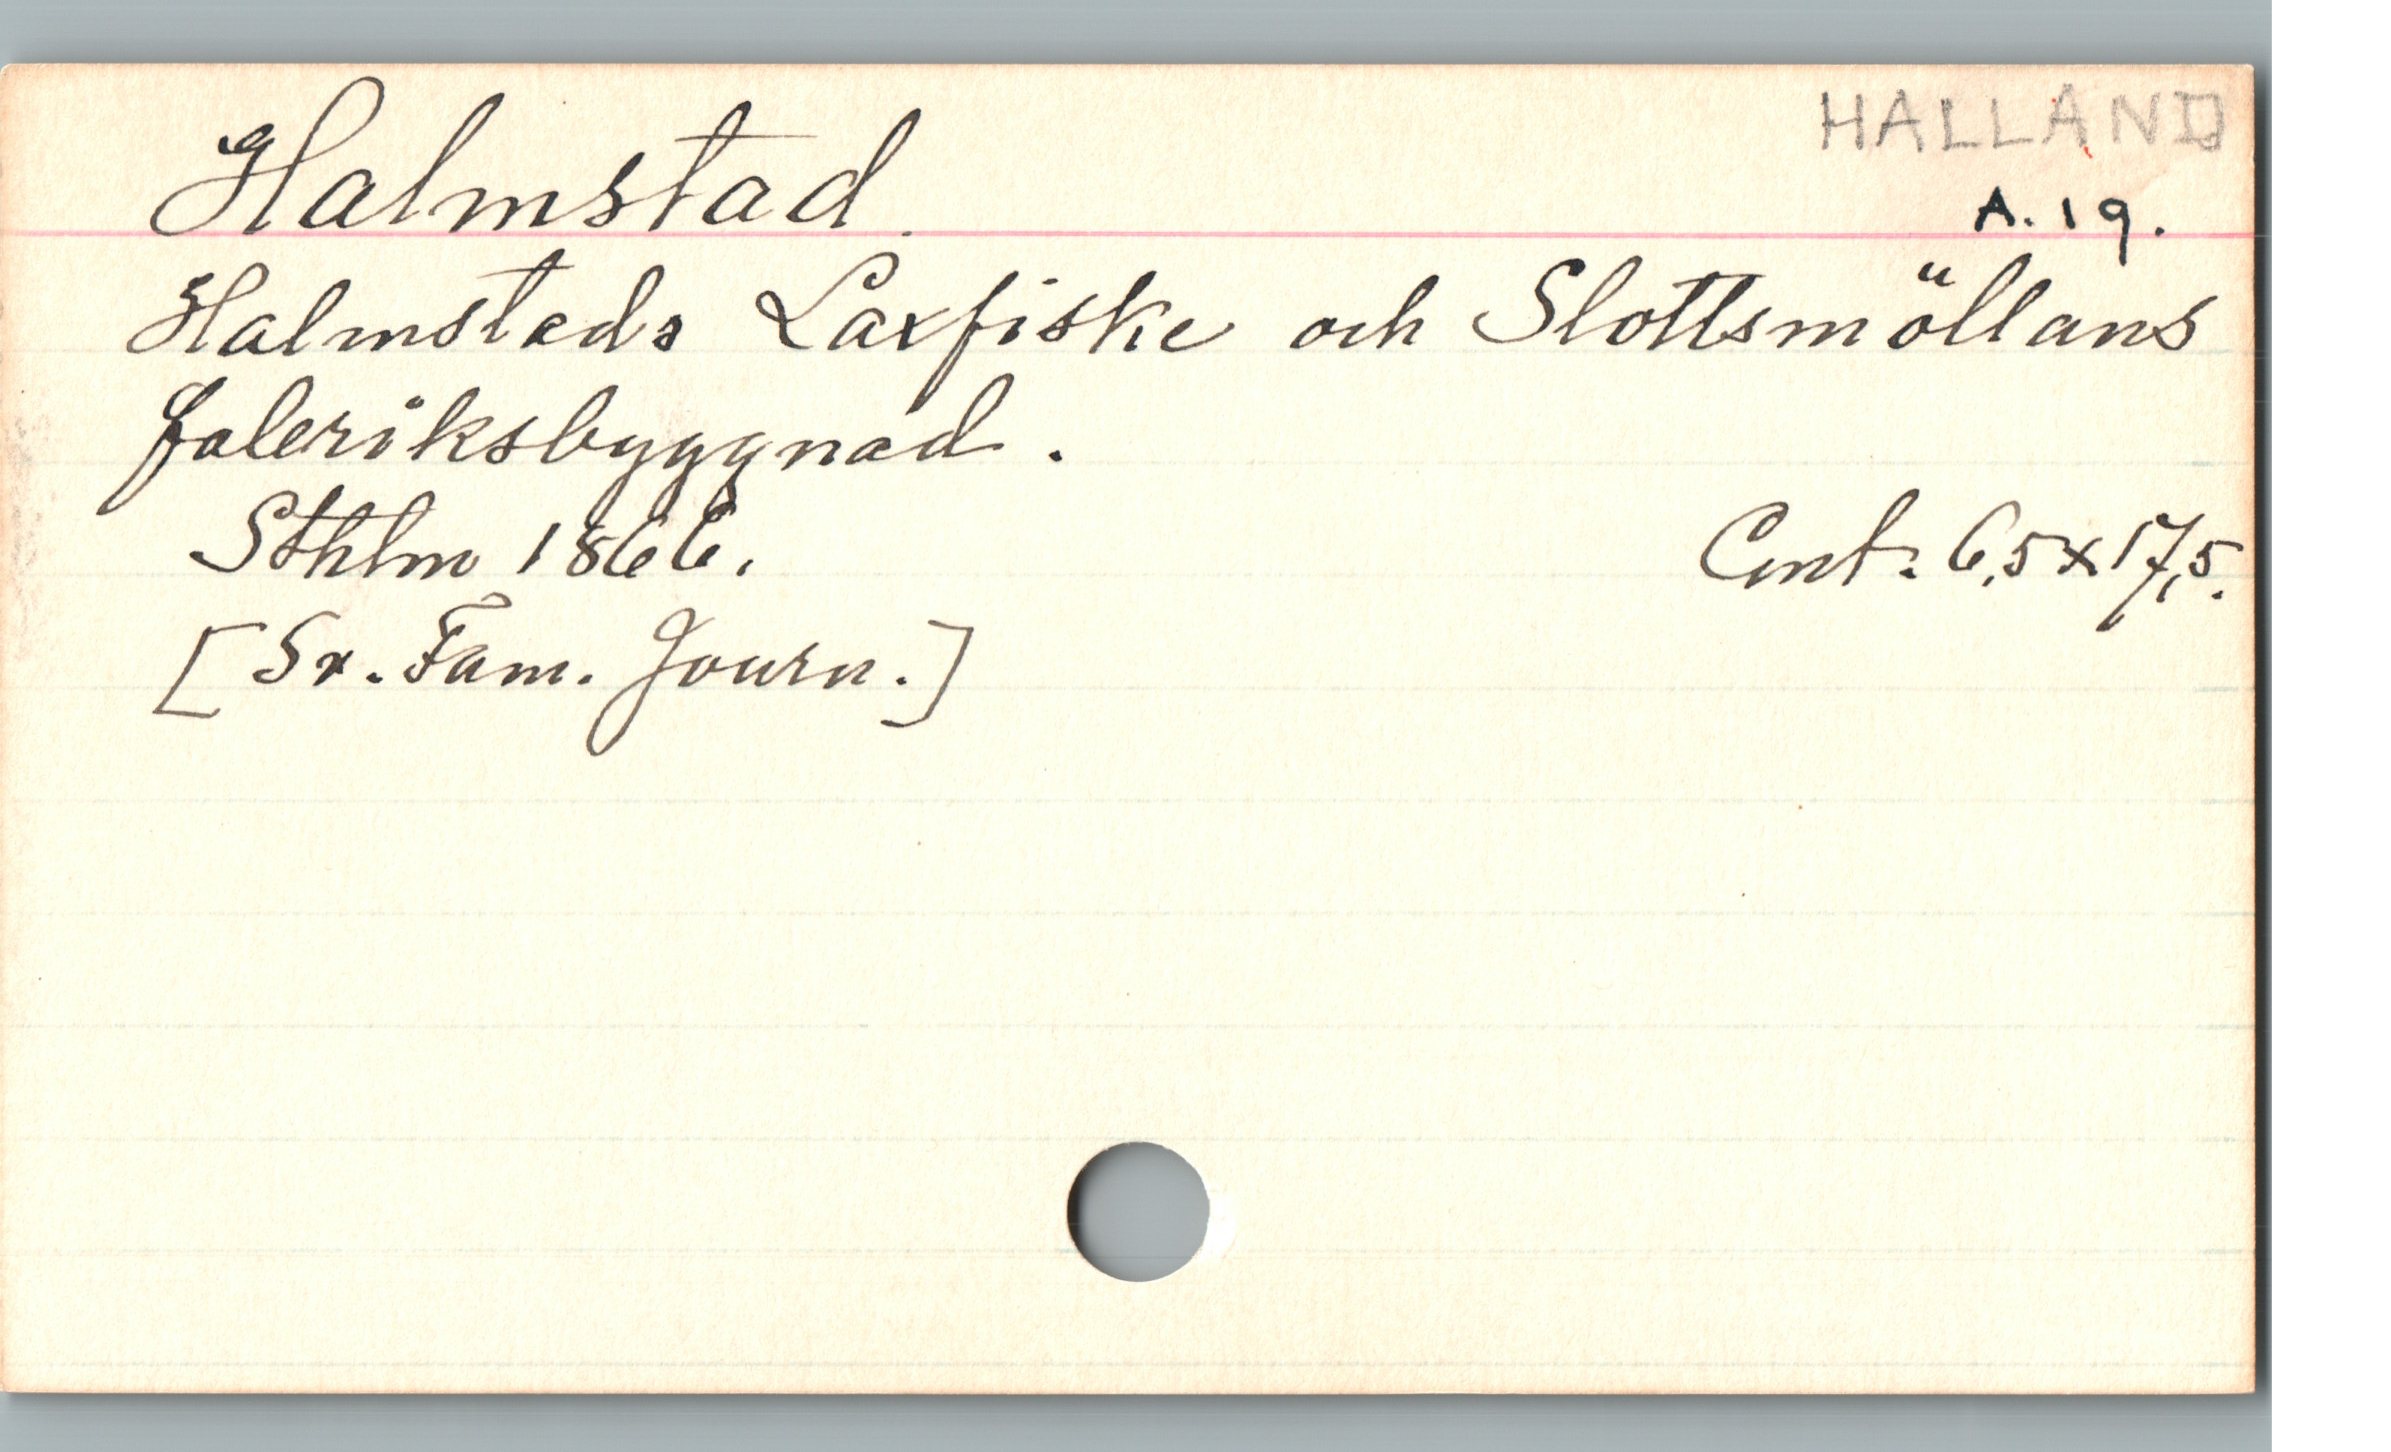 HALLAND
Halmstad.
A. 19.
Halmstads Laxfiske och Slottsmöllans
fabriksbyggnad.
Sthlm 1866.
Cmt. 6,5x17,5.
[Sv. Fam. Journ.]